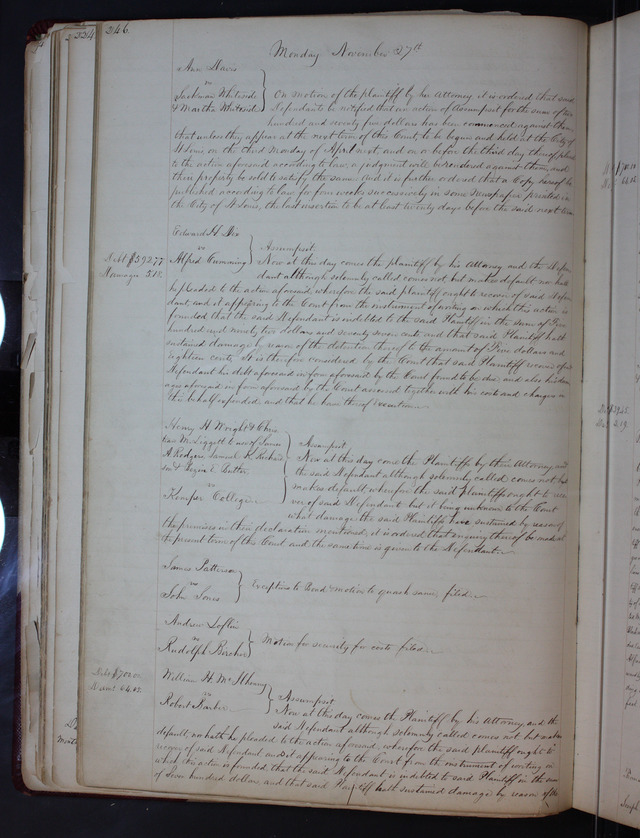 246.
Monday November 27th
Ann Davis
vs
Jackman Whitesides
& Martha Whiteside
On motion of the plaintiff by her Attorney it is ordered that said
Defendants be notified that an action of Assumpsit for the sum of two
hundred and seventy five dollars has been commenced against them
that unless they appear at the next term of this Court, to be begun and held at the City of
St Louis on the third Monday of April next, and on or before the third day thereof plead
to the action aforesaid according to law, a judgment will be rendered against them and
their property be sold to satisfy the same. And it is further ordered that a Copy hereof be
published according to law for four weeks successively in some newspaper printed in
the City of St Louis, the last insertion to be at least twenty days before the said next term
Edward H. Dix
vs
Alfred Cumming
Debt $592.77
Damages 5.18
Assumpsit
Now at this day comes the plaintiff by his Attorney and the Defen
dant although solemnly called comes not but makes default nor hath
he pleaded to the action aforesaid wherefore the said plaintiff ought to recover of said Defen
dant, and it appearing to the Court from the instrument of writing on which this action is
founded that the said Defendant is indebted to the said Plaintiff in the sum of Five
hundred and ninety two dollars and seventy seven cents and that said Plaintiff hath
sustained damage by reason of the detention thereof to the amount of Five dollars and
eighteen cents. It is therefore considered by the Court that said Plaintiff recover of said
Defendant his debt aforesaid in form aforesaid by the Court found to be due and also his dam
ages aforesaid in form aforesaid by the Court assessed together with his costs and charges in
this behalf expended and that he have thereof Execution
Henry H. Wright & Chris
tian M. Liggett to use of James
A Rodgers Samuel R. Richard
son &
vs
Kemper College
Assumpsit
Now at this day come the Plaintiffs by their Attorney, and
the said Defendant although solemnly called comes not but
makes default wherefore the said plaintiffs ought to reco
ver of said Defendant but it being unknown to the Court
what damage the said Plaintiffs have sustained by reason of
the premises in their declaration mentioned, it is ordered that inquiry thereof be made at
the present term of this Court and the same time is given to the Defendant
James Patterson
vs
John Jones
Exceptions to Bond & motion to quash same filed
Andrew Loflin
vs
Rudolph Bircher
Motion for security for costs filed
William H. McIlhenny
vs
Robert Barber
Debt $700.00
Dam. 64.05
Assumpsit
Now at this day comes the Plaintiff by his Attorney, and the
said Defendant although solemnly called comes not but makes
default, nor hath he pleaded to the action aforesaid, wherefore the said plaintiff ought to
recover of said Defendant and it appearing to the Court from the instrument of writing on
which this action is founded, that the said Defendant is indebted to said Plaintiff in the sum
of Seven hundred dollars and that said Plaintiff hath sustained damage by reason of the